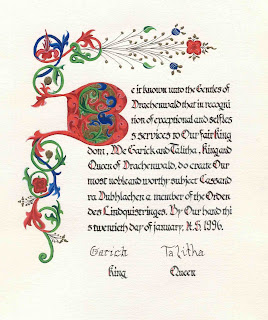 Be it known unto the Gentles of
Drachenwald that in recogni
tion of exceptional and selfles
s services to Our fair King
dom, We Garick and Talitha, King and
Queen of Drachenwald, do create Our
most noble and worthy subject Cassand
ra Dubhlachen a member of the Orden
des Lindquistringes. By Our hand thi
s twentieth day of January, A.S. 1996.
Garick Talitha
King Queen